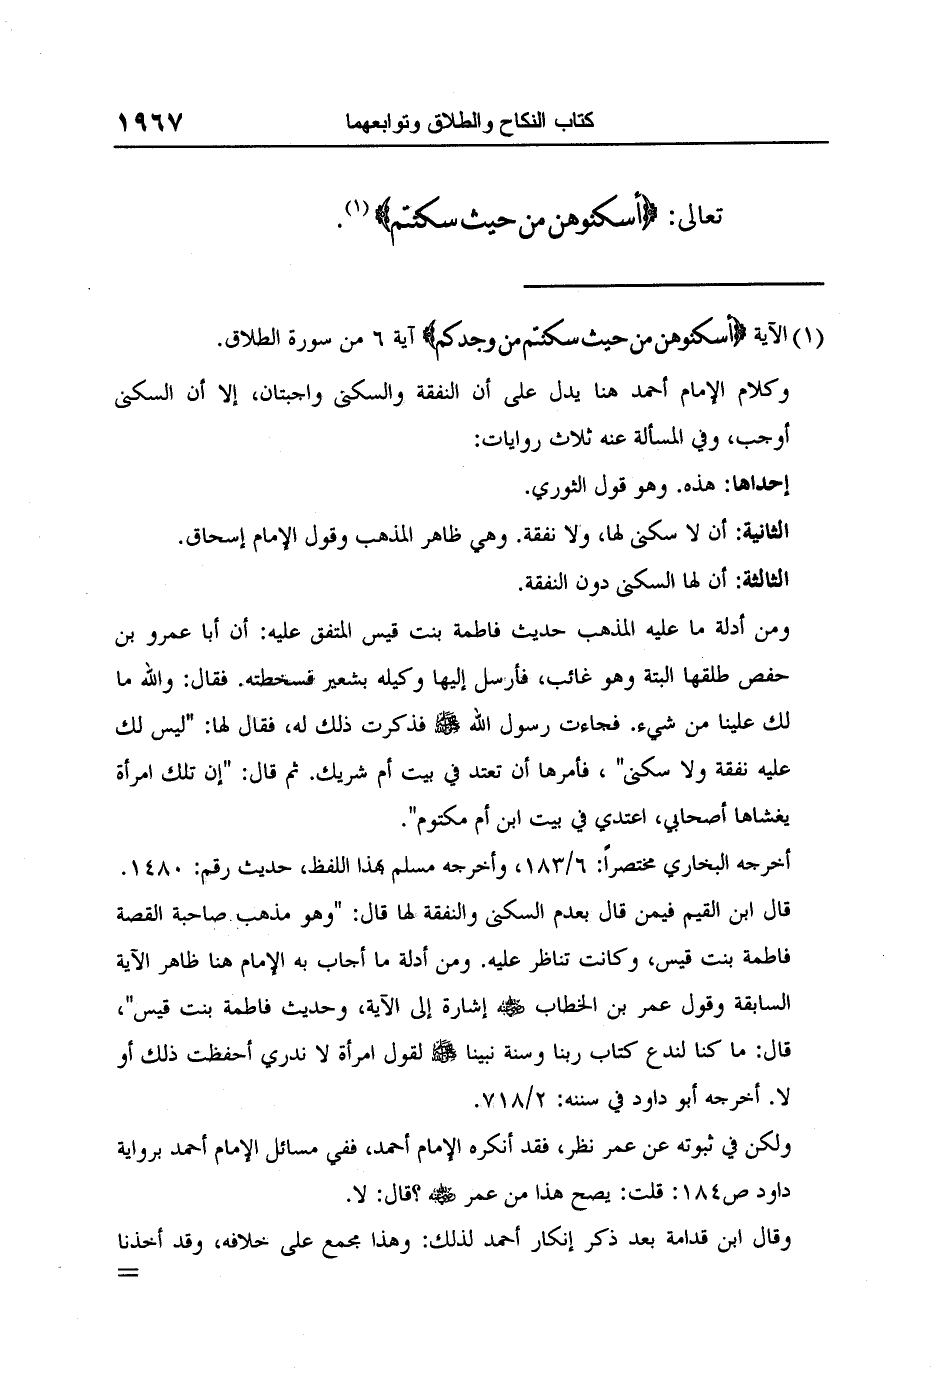 كتاب النكاح والطلاق وتوابعهما ١٩٦٧
تعالى: ﴿أسكنوهن من حيث سكنتم﴾(١).
(١) الآية ﴿أسكنوهن من حيث سكنتم من وجدكم﴾ آية ٦ من سورة الطلاق.
وكلام الإمام أحمد هنا يدل على أن النفقة والسكنى واجبتان، إلا أن السكنى
أوجب، وفي المسألة عنه ثلاث روايات:
إحداها: هذه. وهو قول الثوري.
الثانية: أن لا سكنى لها، ولا نفقة. وهي ظاهر المذهب وقول الإمام إسحاق.
الثالثة: أن لها السكنى دون النفقة.
ومن أدلة ما عليه المذهب حديث فاطمة بنت قيس المتفق عليه: أن أبا عمرو بن
حفص طلقها البتة وهو غائب، فأرسل إليها وكيله بشعير فسخطته. فقال: والله ما
لك علينا من شيء. فجاءت رسول الله ﷺ فذكرت ذلك له، فقال لها: "ليس لك
عليه نفقة ولا سكنى" ، فأمرها أن تعتد في بيت أم شريك. ثم قال: "إن تلك امرأة
يغشاها أصحابي، اعتدي في بيت ابن أم مكتوم".
أخرجه البخاري مختصراً: ١٨٣/٦، وأخرجه مسلم بهذا اللفظ، حديث رقم: ١٤٨٠.
قال ابن القيم فيمن قال بعدم السكنى والنفقة لها قال: "وهو مذهب صاحبة القصة
فاطمة بنت قيس، وكانت تناظر عليه. ومن أدلة ما أجاب به الإمام هنا ظاهر الآية
السابقة وقول عمر بن الخطاب رضي الله عنه إشارة إلى الآية، وحديث فاطمة بنت قيس"،
قال: ما كنا لندع كتاب ربنا وسنة نبينا ﷺ لقول امرأة لا ندري أحفظت ذلك أو
لا. أخرجه أبو داود في سننه: ٧١٨/٢.
ولكن في ثبوته عن عمر نظر، فقد أنكره الإمام أحمد، ففي مسائل الإمام أحمد برواية
داود ص١٨٤: قلت: يصح هذا من عمر رضي الله عنه ؟قال: لا.
وقال ابن قدامة بعد ذكر إنكار أحمد لذلك: وهذا مجمع على خلافه، وقد أخذنا
=